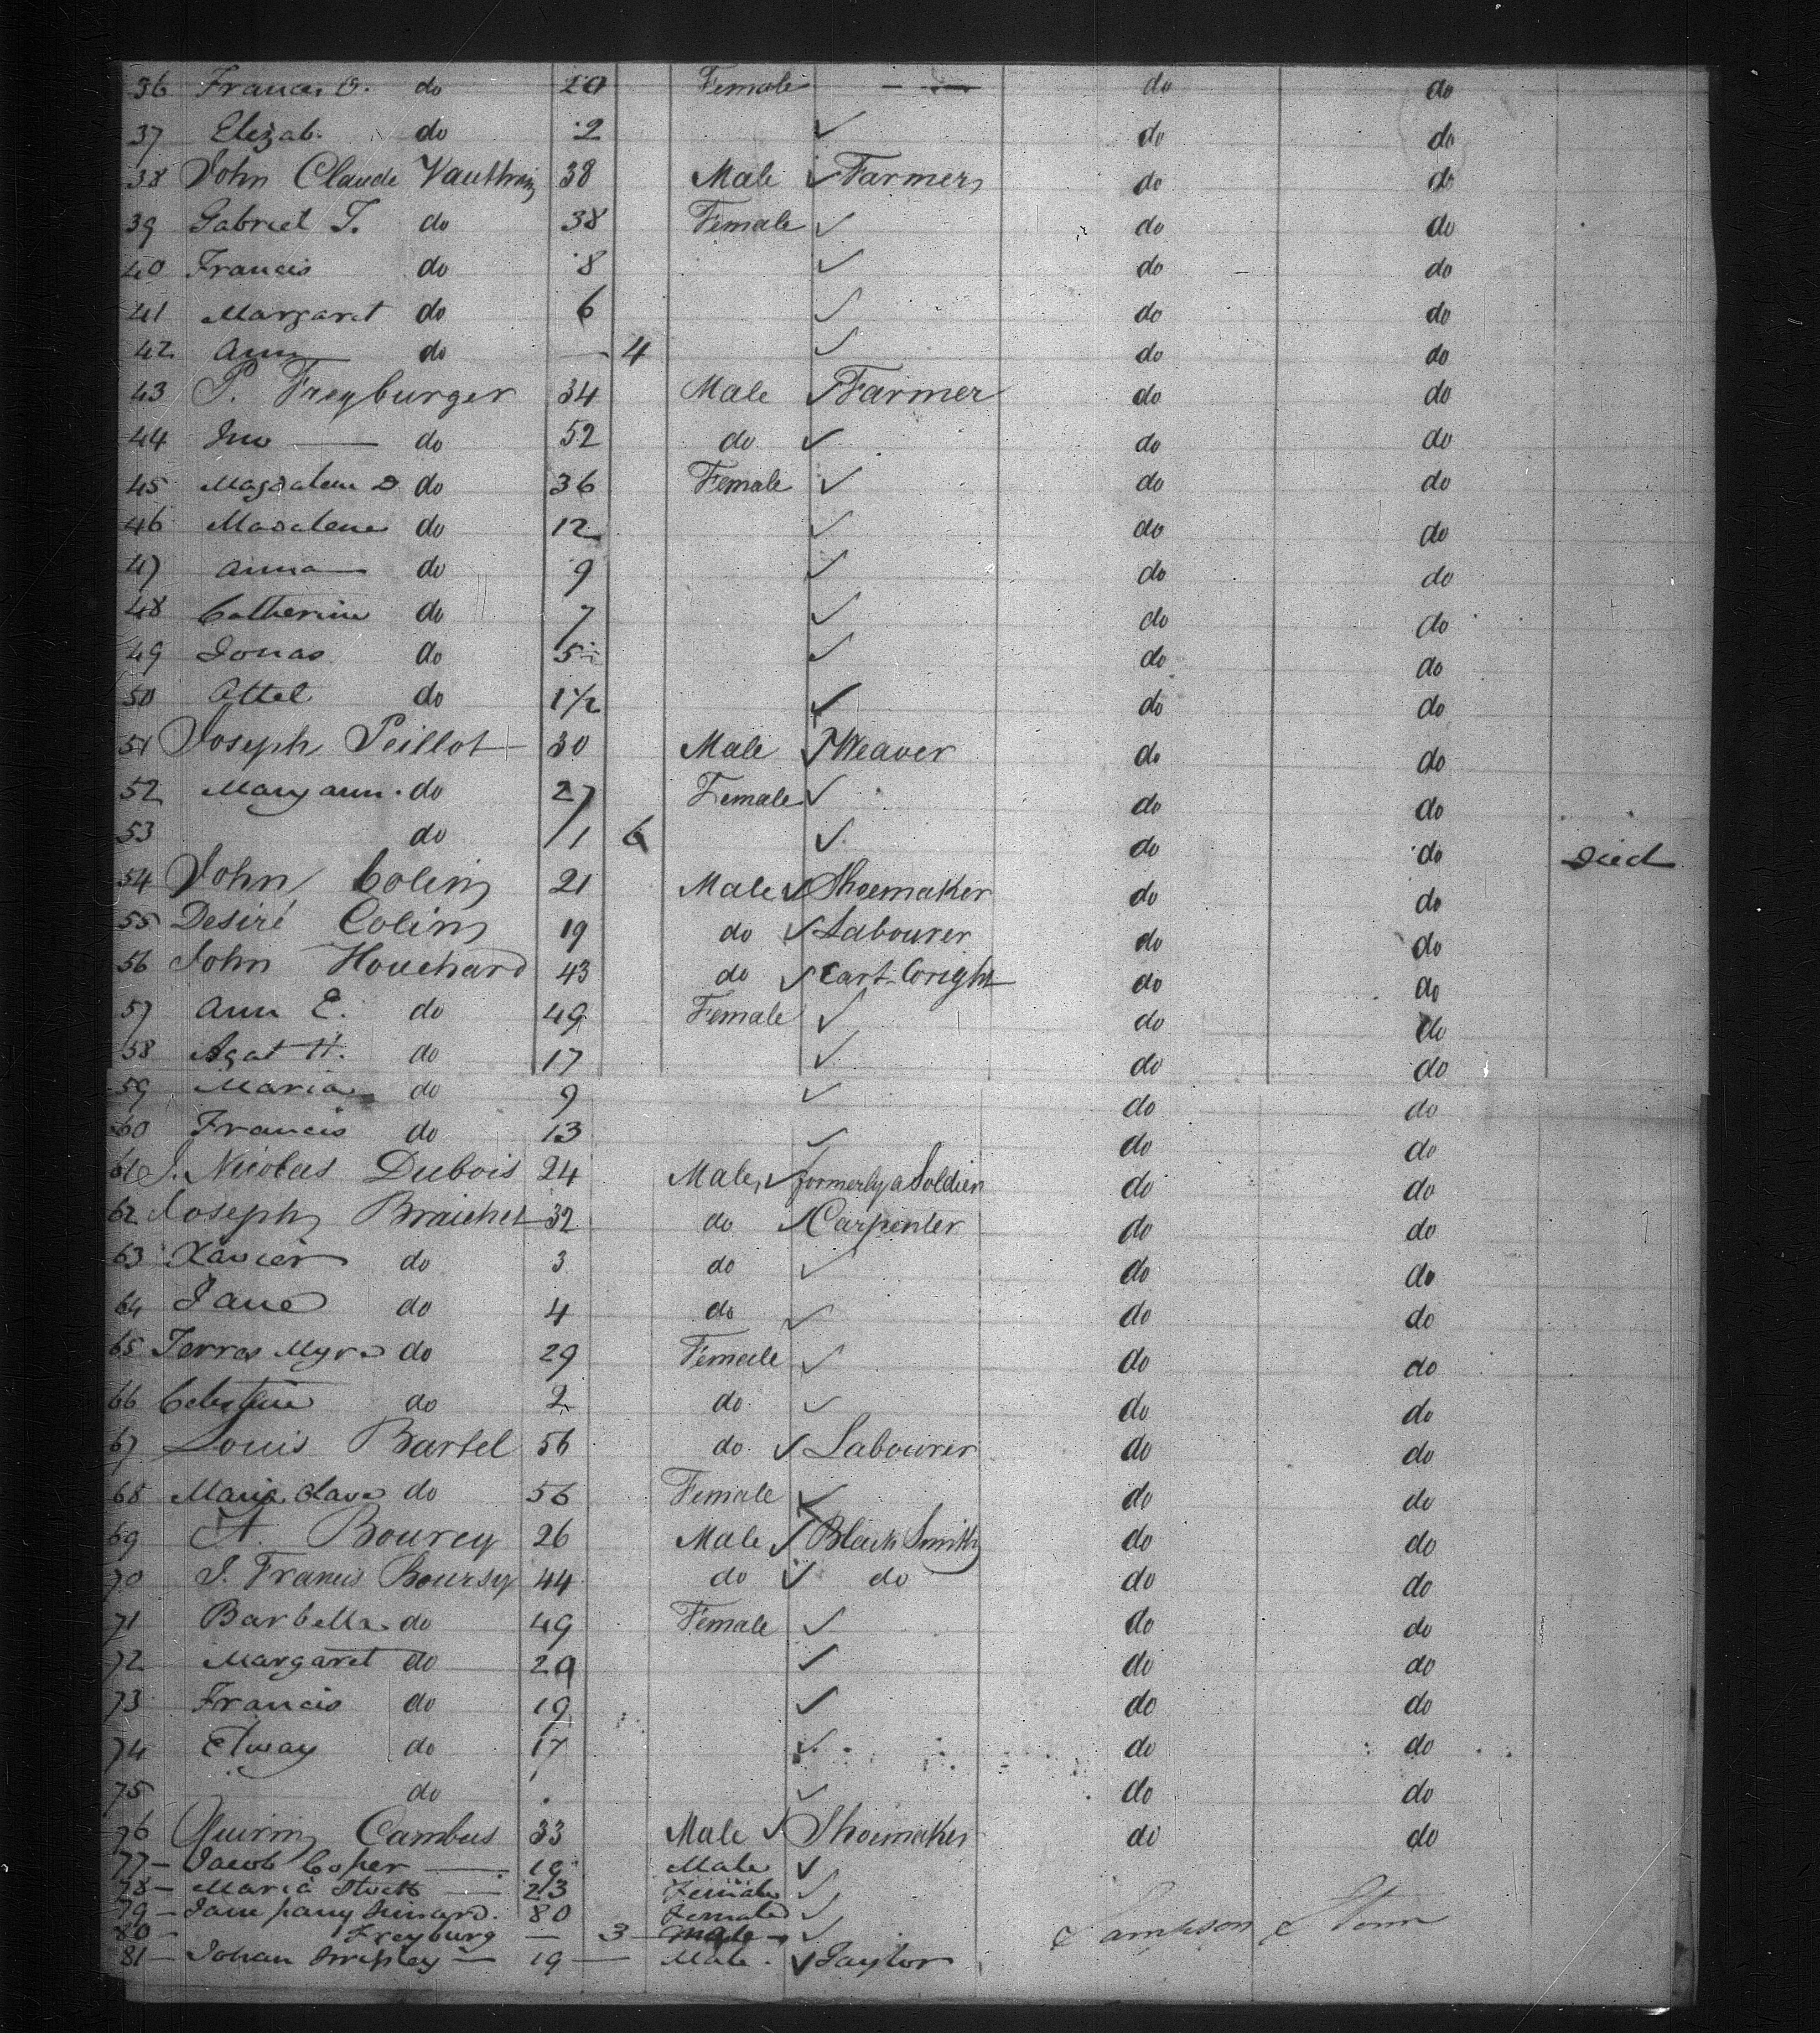 36 Francis O. do 20 Female — — do do
37 Elizab. do 2 ✓ do do
38 John Claude Vauthrin 38 Male ✓ Farmer do do
39 Gabriel T. do 38 Female ✓ do do
40 Francis do 8 ✓ do do
41 Margaret do 6 ✓ do do
42 Ann — do — 4 ✓ do do
43 P. Freyburger 34 Male ✓ Farmer do do
44 Jno — do 52 do ✓ do do
45 Magdalena D do 36 Female ✓ do do
46 Madalene do 12 ✓ do do
47 Anna — do 9 ✓ do do
48 Catherine do 7 ✓ do do
49 Jonas do 5 ✓ do do
50 Attel do 1½ ✓ do do
51 Joseph Peillot 30 Male ✓ Weaver do do
52 Mary ann do 27 Female ✓ do do
53 do /1 6 ✓ do do Died
54 John Colin 21 Male ✓ Shoemaker do do
55 Desiré Colin 19 do ✓ Labourer do do
56 John Houchard 43 do ✓ Cart Wright do do
57 Ann E. do 49 Female ✓ do do
58 Agat H. do 17 ✓ do do
59 Maria do 9 ✓ do do
60 Francis do 13 ✓ do do
61 J. Nicolas Dubois 24 Male ✓ formerly a Soldier do do
62 Joseph Braichet 32 do ✓ Carpenter do do
63 Xavier do 3 do ✓ do do
64 Jane do 4 do ✓ do do
65 Terres Myra do 29 Female ✓ do do
66 Celestine do 2 do ✓ do do
67 Louis Bartel 56 do ✓ Labourer do do
68 Maria Clava do 56 Female ✓ do do
69 A. Bourcy 26 Male ✓ Black Smith do do
70 J. Francis Boursy 44 do ✓ do do do
71 Barbella do 49 Female ✓ do do
72 Margaret do 29 ✓ do do
73 Francis do 19 ✓ do do
74 Elway do 17 ✓ do do
75 do ✓ do do
76 Quirin Cambus 33 Male ✓ Shoemaker do do
77 — Jacob Coper — 19 Male ✓
78 — Maria — 23 Female ✓
79 — Jane 80 Female ✓
80 — Freyburg — 3 — Male — ✓
81 — Johan — 19 — Male ✓ Taylor
Sampson Storm